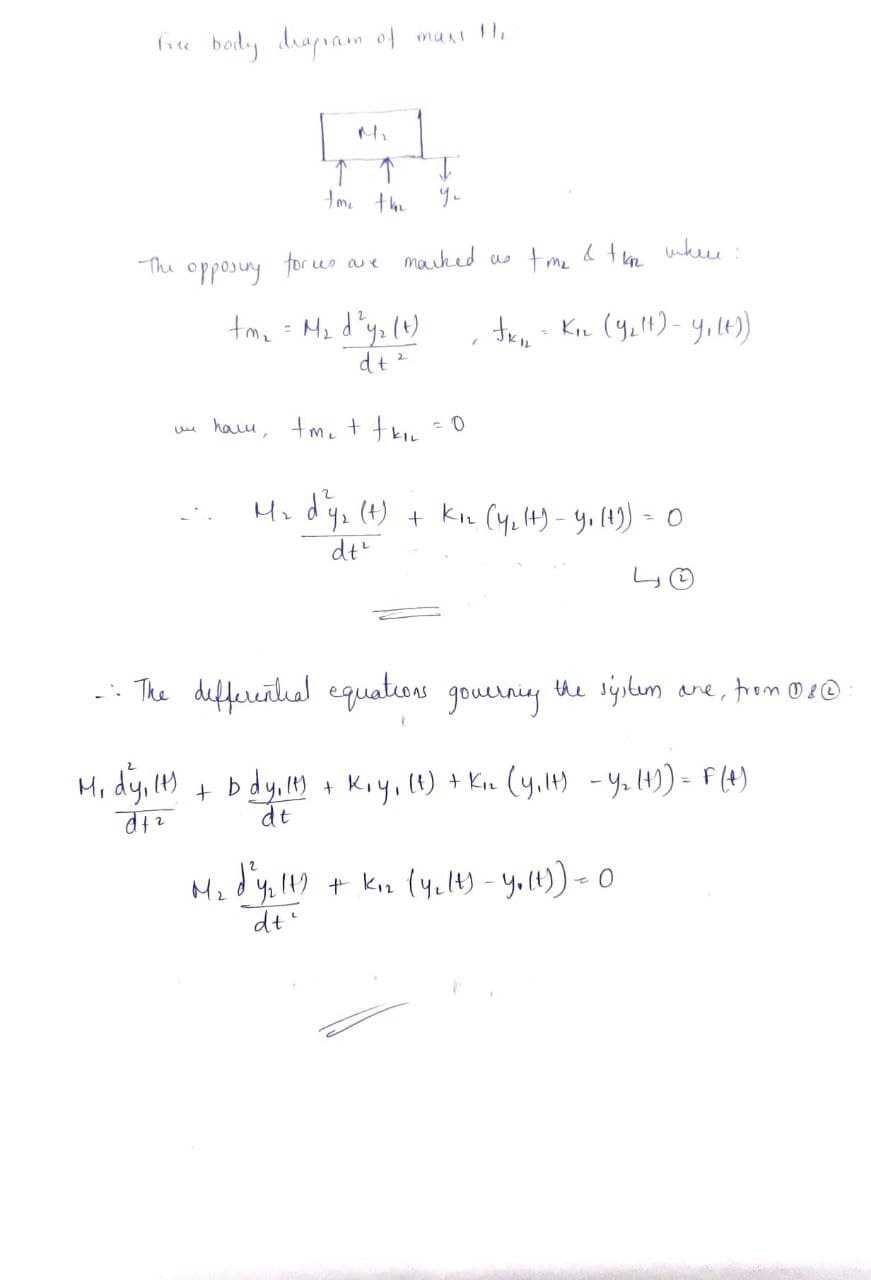 Free body diagram of mass M₂
M₂
fm₂ fk₁₂ y₂
The opposing forces are marked as fm₂ & fk₁₂ where :
fm₂ = M₂ d²y₂(t)/dt² , fk₁₂ = K₁₂ (y₂(t) - y₁(t))
we have, fm₂ + fk₁₂ = 0
∴ M₂ d²y₂(t)/dt² + K₁₂ (y₂(t) - y₁(t)) = 0
↳ ②
∴ The defferential equations governing the system are, from ① & ② :
M₁ d²y₁(t)/dt² + b dy₁(t)/dt + K₁y₁(t) + K₁₂ (y₁(t) - y₂(t)) = F(t)
M₂ d²y₂(t)/dt² + K₁₂ (y₂(t) - y₁(t)) = 0